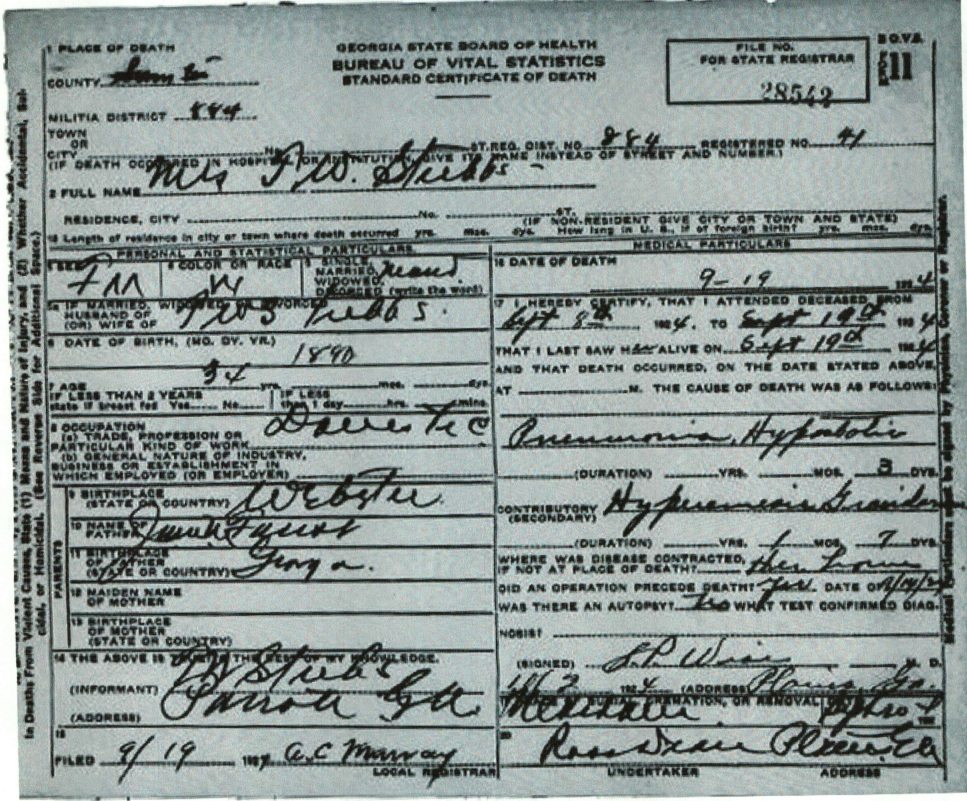 1 PLACE OF DEATH
GEORGIA STATE BOARD OF HEALTH
BUREAU OF VITAL STATISTICS
STANDARD CERTIFICATE OF DEATH
FILE NO.
FOR STATE REGISTRAR
28542
B O.V.S.
11
COUNTY Sumter
MILITIA DISTRICT 884
TOWN
OR
CITY No. ST. REG. DIST. NO 884 REGISTERED NO. 41
(IF DEATH OCCURRED IN HOSPITAL OR INSTITUTION, GIVE ITS NAME INSTEAD OF STREET AND NUMBER.)
2 FULL NAME Mrs T. W. Stubbs
RESIDENCE, CITY No. ST. (IF NON-RESIDENT GIVE CITY OR TOWN AND STATE)
Length of residence in city or town where death occurred yrs. mos. dys. How long in U. S., if of foreign birth? yrs. mos. dys.
PERSONAL AND STATISTICAL PARTICULARS
SEX
4 COLOR OR RACE W
5 SINGLE, MARRIED, WIDOWED, DIVORCED (write the word)
IF MARRIED, WIDOWED OR DIVORCED
HUSBAND OF
(OR) WIFE OF Stubbs.
6 DATE OF BIRTH, (MO. DY. YR.) 1890
7 AGE 34 yrs. mos. dys.
IF LESS THAN 2 YEARS
state if breast fed Yes No
IF LESS than 1 day hrs. mins.
8 OCCUPATION
(a) TRADE, PROFESSION OR
PARTICULAR KIND OF WORK Domestic
(b) GENERAL NATURE OF INDUSTRY,
BUSINESS OR ESTABLISHMENT IN
WHICH EMPLOYED (OR EMPLOYER)
PARENTS
9 BIRTHPLACE
(STATE OR COUNTRY) Webster
10 NAME OF
FATHER
11 BIRTHPLACE
OF FATHER
(STATE OR COUNTRY) Georgia
12 MAIDEN NAME
OF MOTHER
13 BIRTHPLACE
OF MOTHER
(STATE OR COUNTRY)
14 THE ABOVE IS THE BEST OF MY KNOWLEDGE.
(INFORMANT) Stubbs
(ADDRESS) Parrott Ga
15
FILED 9/19 192 A.C. Murray
LOCAL REGISTRAR
MEDICAL PARTICULARS
16 DATE OF DEATH
9-19 1924
17 I HEREBY CERTIFY, THAT I ATTENDED DECEASED FROM
Sept 8th 1924, TO Sept 19th 1924
THAT I LAST SAW HER ALIVE ON Sept 19th 1924
AND THAT DEATH OCCURRED, ON THE DATE STATED ABOVE,
AT M. THE CAUSE OF DEATH WAS AS FOLLOWS:
Pneumonia, Hypostatic
(DURATION) YRS. MOS. 3 DYS.
CONTRIBUTORY (SECONDARY) Hyperemesis
(DURATION) YRS. 1 MOS. 7 DYS.
WHERE WAS DISEASE CONTRACTED,
IF NOT AT PLACE OF DEATH?
DID AN OPERATION PRECEDE DEATH? Yes DATE OF
WAS THERE AN AUTOPSY? No WHAT TEST CONFIRMED DIAG-
NOSIS?
(SIGNED) Wise M. D.
1924 (ADDRESS) Plains, Ga.
BURIAL, CREMATION, OR REMOVAL
20
Ross Dean Plains, Ga
UNDERTAKER ADDRESS
In Deaths From Violent Causes, State (1) Means and Nature of Injury, and (2) Whether Accidental, Suicidal, or Homicidal. (See Reverse Side for Additional Space.)